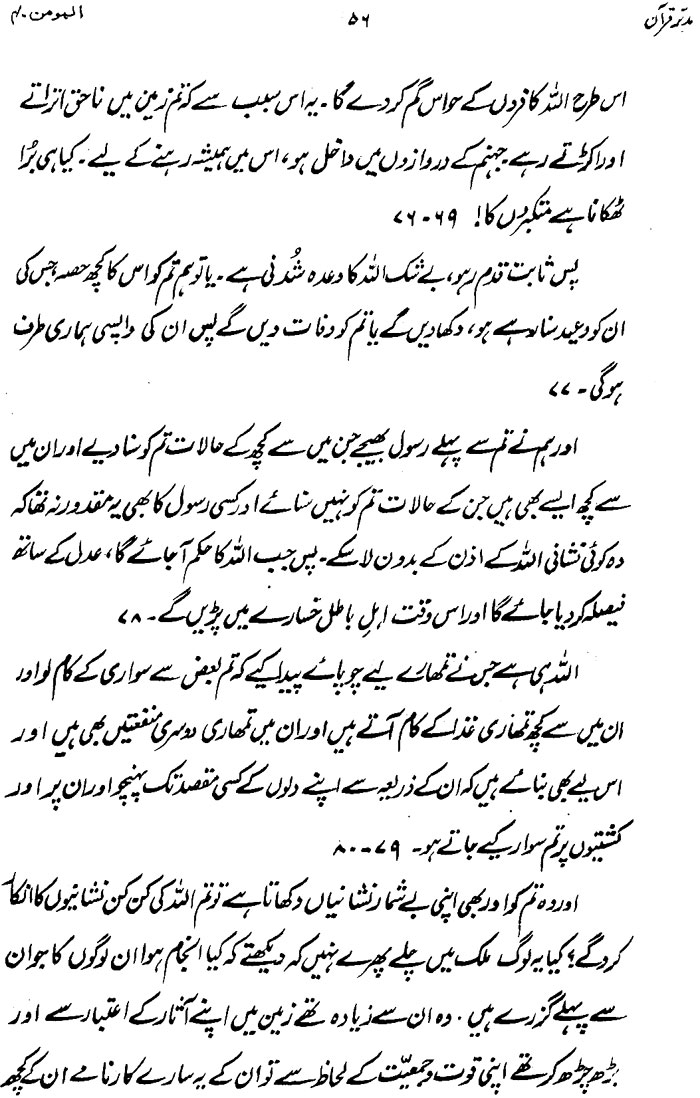 تدبر قرآن ۵۶ المومن ۴۰
اس طرح اللہ کافروں کے حواس گم کر دے گا۔ یہ اس سبب سے کہ تم زمین میں ناحق اتراتے
اور اکڑتے رہے۔ جہنم کے دروازوں میں داخل ہو، اس میں ہمیشہ رہنے کے لیے۔ کیا ہی برُا
ٹھکانا ہے متکبروں کا! ۶۹-۷۶
پس ثابت قدم رہو، بے شک اللہ کا وعدہ شُدنی ہے۔ یا تو ہم تم کو اس کا کچھ حصہ جس کی
ان کو وعید سنا رہے ہو، دکھا دیں گے یا تم کو وفات دیں گے پس ان کی واپسی ہماری طرف
ہوگی۔ ۷۷
اور ہم نے تم سے پہلے رسول بھیجے جن میں سے کچھ کے حالات تم کو سنا دیے اور ان میں
سے کچھ ایسے بھی ہیں جن کے حالات تم کو نہیں سنائے اور کسی رسول کا بھی یہ مقدور نہ تھا کہ
وہ کوئی نشانی اللہ کے اذن کے بدون لا سکے۔ پس جب اللہ کا حکم آ جائے گا، عدل کے ساتھ
فیصلہ کر دیا جائے گا اور اس وقت اہلِ باطل خسارے میں پڑیں گے۔ ۷۸
اللہ ہی ہے جس نے تمھارے لیے چوپائے پیدا کیے کہ تم بعض سے سواری کے کام لو اور
ان میں سے کچھ تمھاری غذا کے کام آتے ہیں اور ان میں تمھاری دوسری منفعتیں بھی ہیں اور
اس لیے بھی بنائے ہیں کہ ان کے ذریعہ سے اپنے دلوں کے کسی مقصد تک پہنچو اور ان پر اور
کشتیوں پر تم سوار کیے جاتے ہو۔ ۷۹-۸۰
اور وہ تم کو اور بھی اپنی بے شمار نشانیاں دکھاتا ہے تو تم اللہ کی کن کن نشانیوں کا انکار
کرو گے؟ کیا یہ لوگ ملک میں چلے پھرے نہیں کہ دیکھتے کہ کیا انجام ہوا ان لوگوں کا جو ان
سے پہلے گزرے ہیں۔ وہ ان سے زیادہ تھے زمین میں اپنے آثار کے اعتبار سے اور
بڑھ چڑھ کر تھے اپنی قوت و جمعیّت کے لحاظ سے تو ان کے یہ سارے کارنامے ان کے کچھ